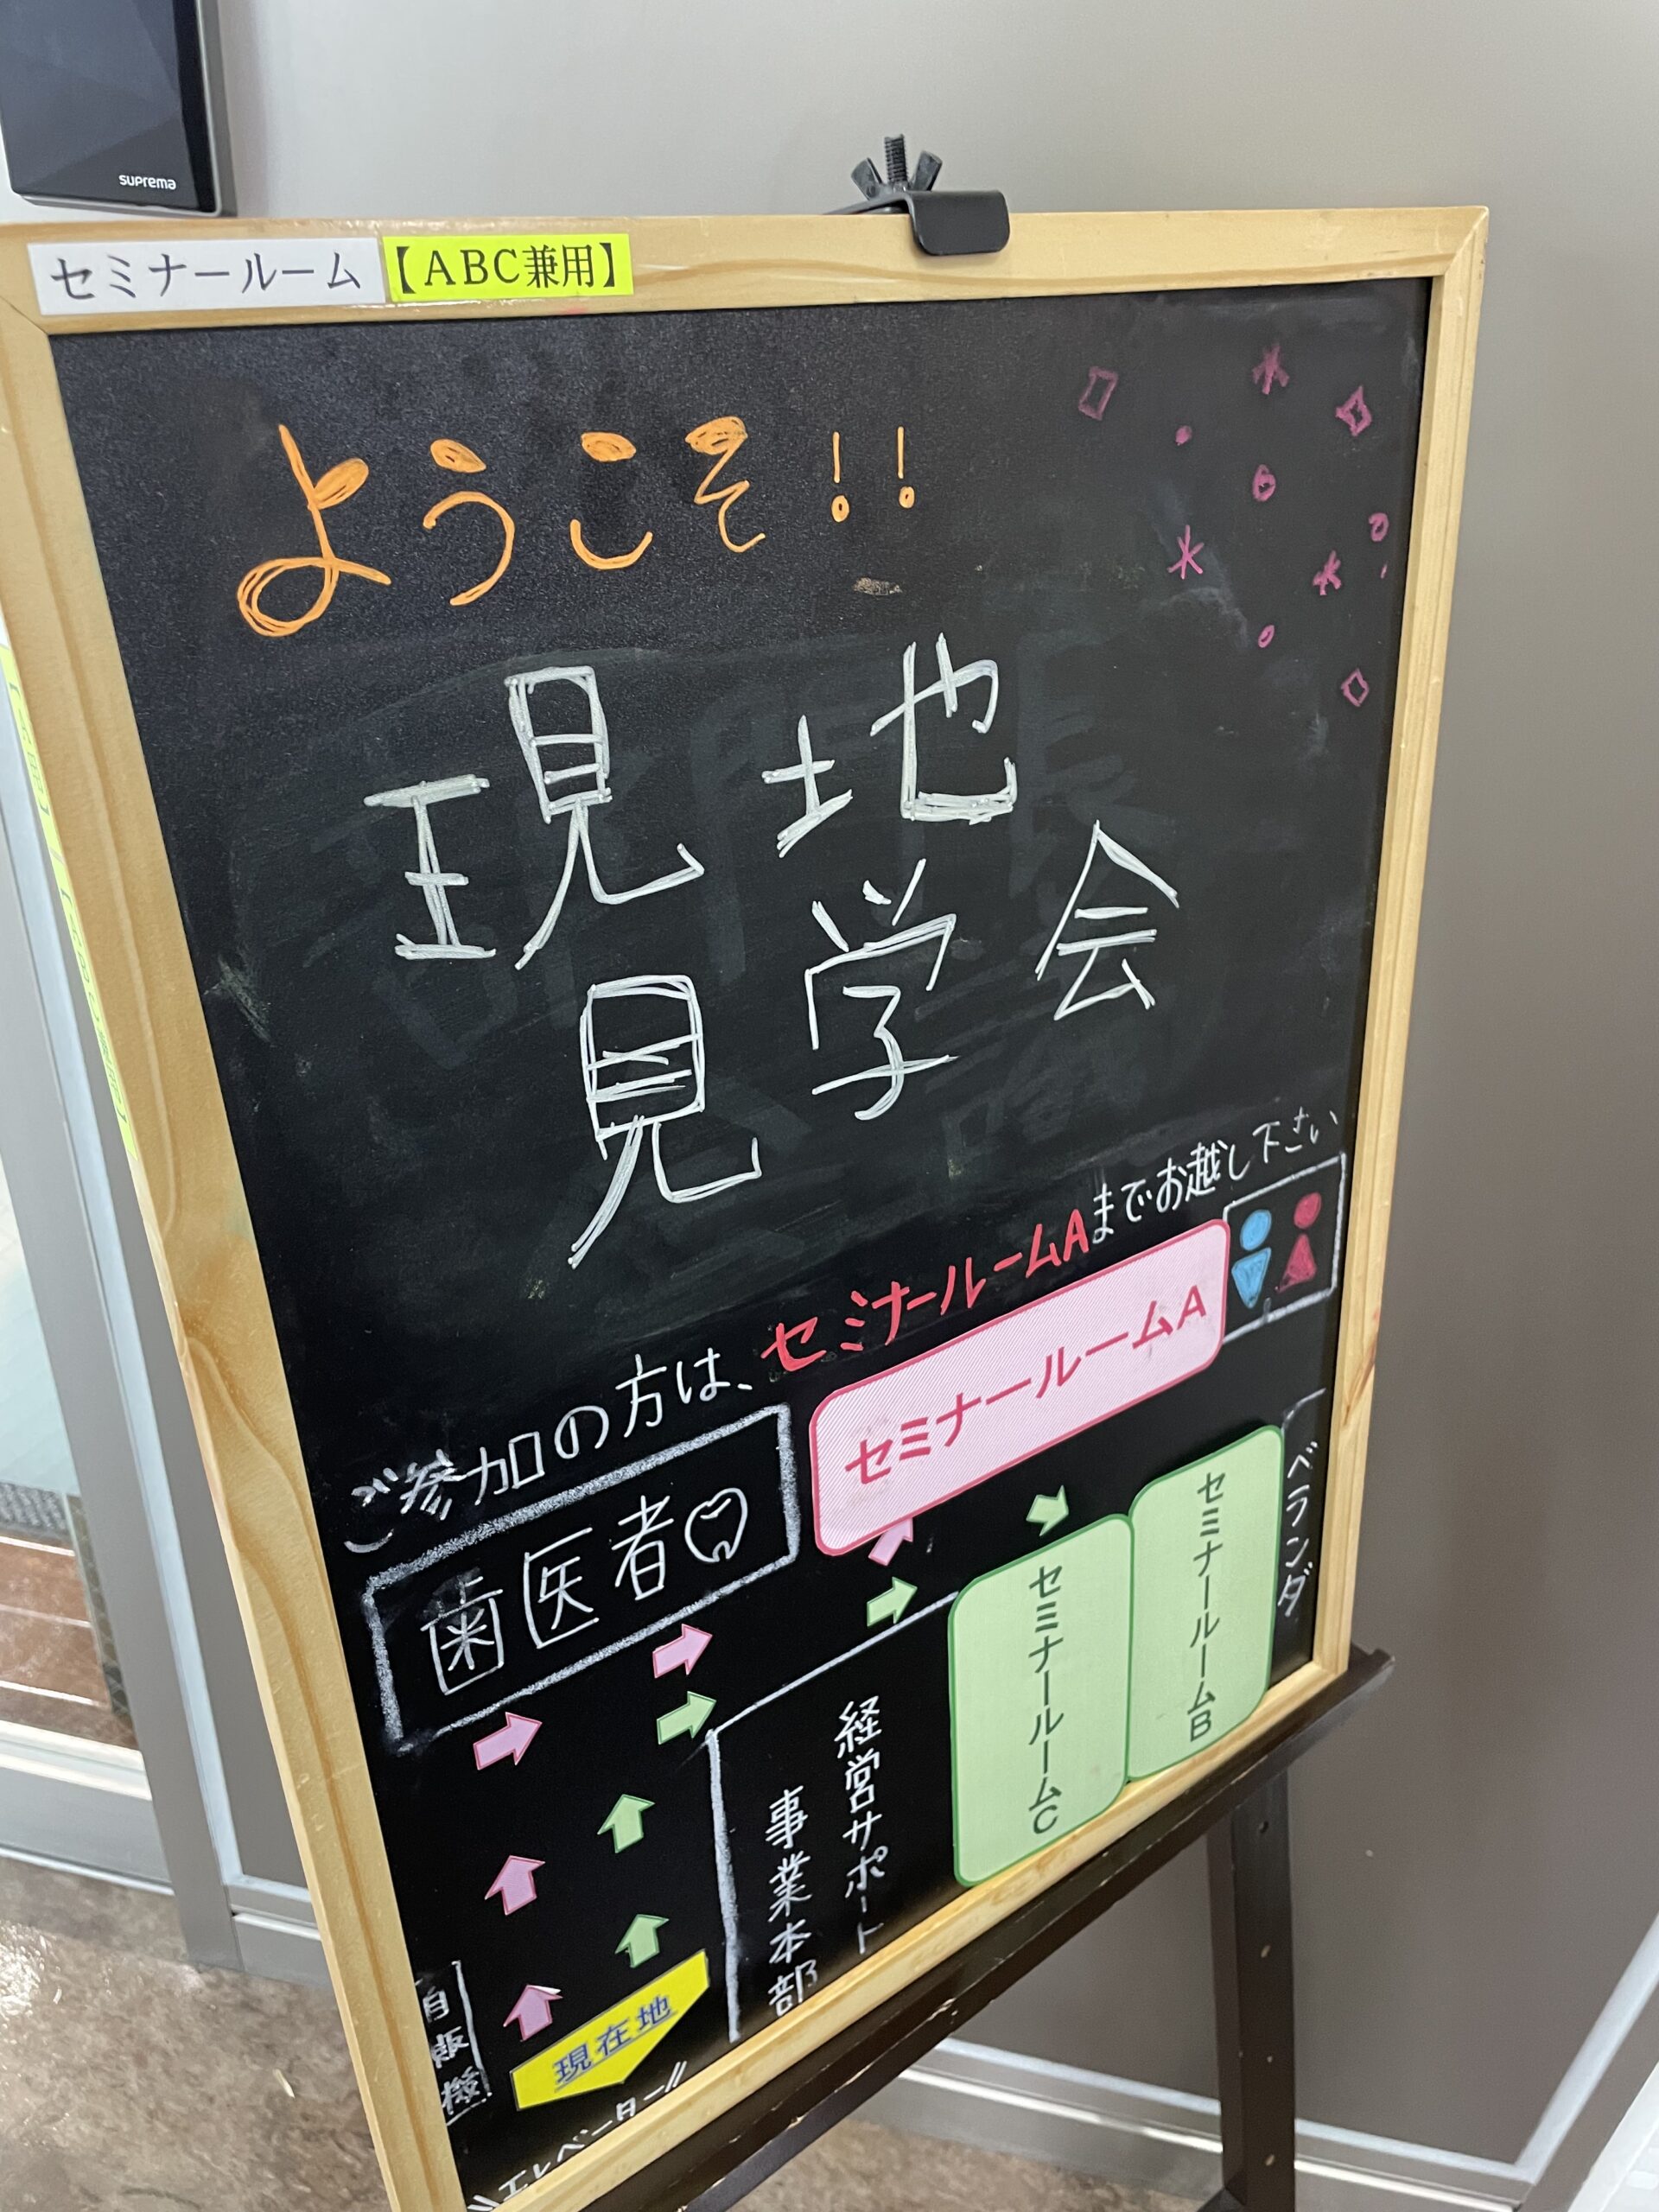 suprema
セミナールーム【ABC兼用】
ようこそ!!
現地
見学会
ご参加の方は、セミナールームAまでお越し下さい
セミナールームA
歯医者
ベランダ
セミナールームB
セミナールームC
経営サポート
事業本部
自販機
現在地
エレベーター